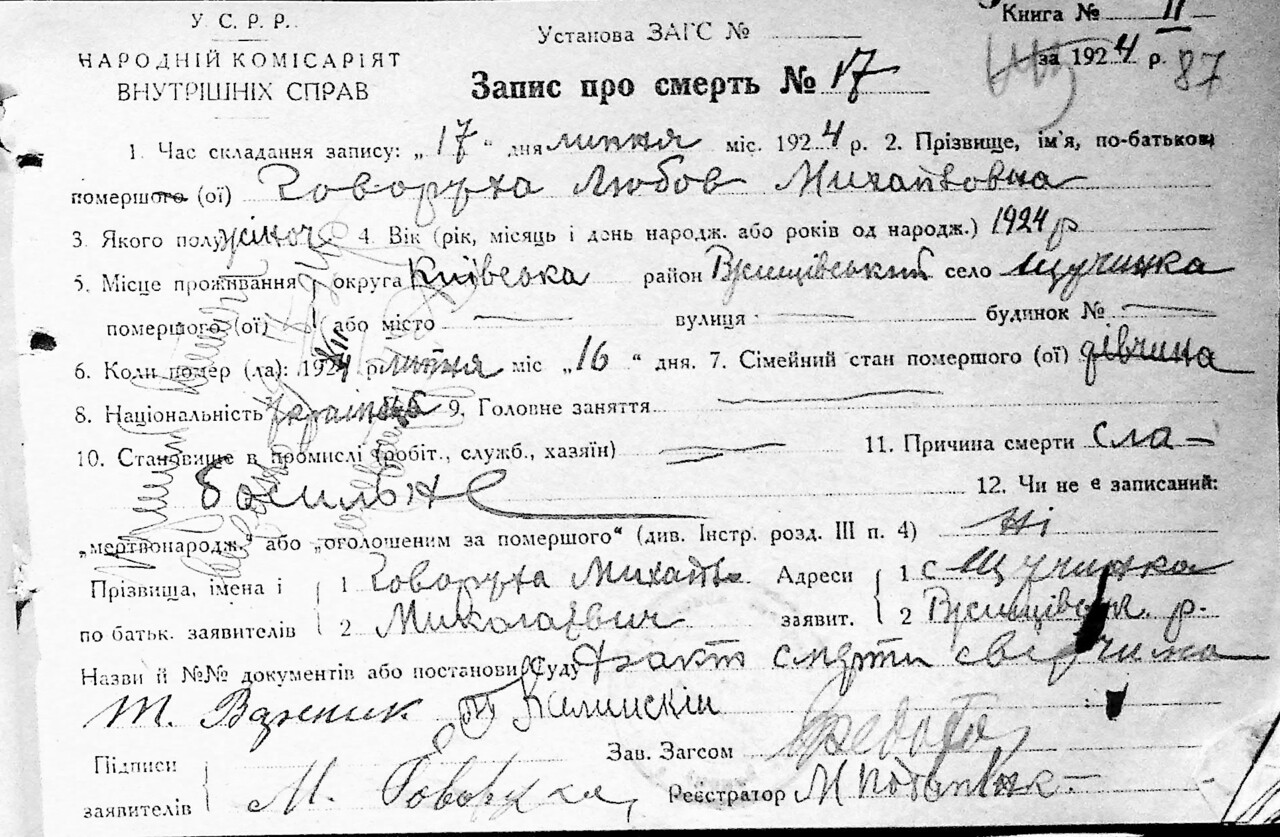 У. С. Р. Р.
НАРОДНІЙ КОМІСАРІЯТ
ВНУТРІШНІХ СПРАВ
Установа ЗАГС №
Книга № II
за 1924 р. 87
Запис про смерть № 17
1. Час складання запису: „17“ дня липня міс. 1924 р. 2. Прізвище, ім'я, по-батькові
помершого (ої) Говоруха Любов Михайловна
3. Якого полу жіноч 4. Вік (рік, місяць і день народж. або років од народж.) 1924 р
5. Місце проживання округа Київська район Ржищівський село Щучинка
помершого (ої) або місто вулиця будинок №
6. Коли помер (ла): 1924 р липня міс „16“ дня. 7. Сімейний стан помершого (ої) дівчина
8. Національність 9. Головне заняття
10. Становище в промислі (робіт., служб., хазяїн) 11. Причина смерти сла-
босильн 12. Чи не є записаний:
„мертвонародж.“ або „оголошеним за помершого“ (див. Інстр. розд. III п. 4) Ні
Прізвища, імена і 1 Говоруха Михайло Адреси 1 с Щучинка
по батьк. заявителів 2 Миколаєвич заявит. 2 Ржищівськ. р.
Назви й №№ документів або постанови Суду Факт смерти свідчимо
Т. Калинскій
Підписи Зав. Загсом
заявителів М. Говоруха Реєстратор